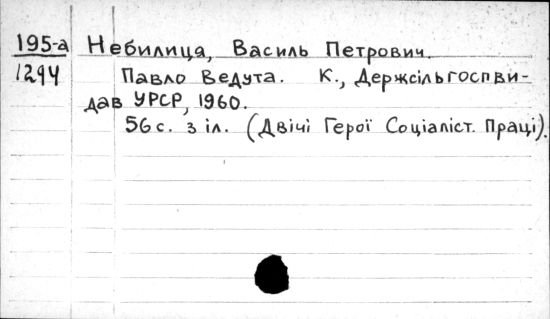 195-а Небилица, Василь Петрович.
1294 Павло Ведута. К., Держсільгоспви-
дав УРСР, 1960.
56 с. з іл. (Двічі Герої Соціаліст. Праці).